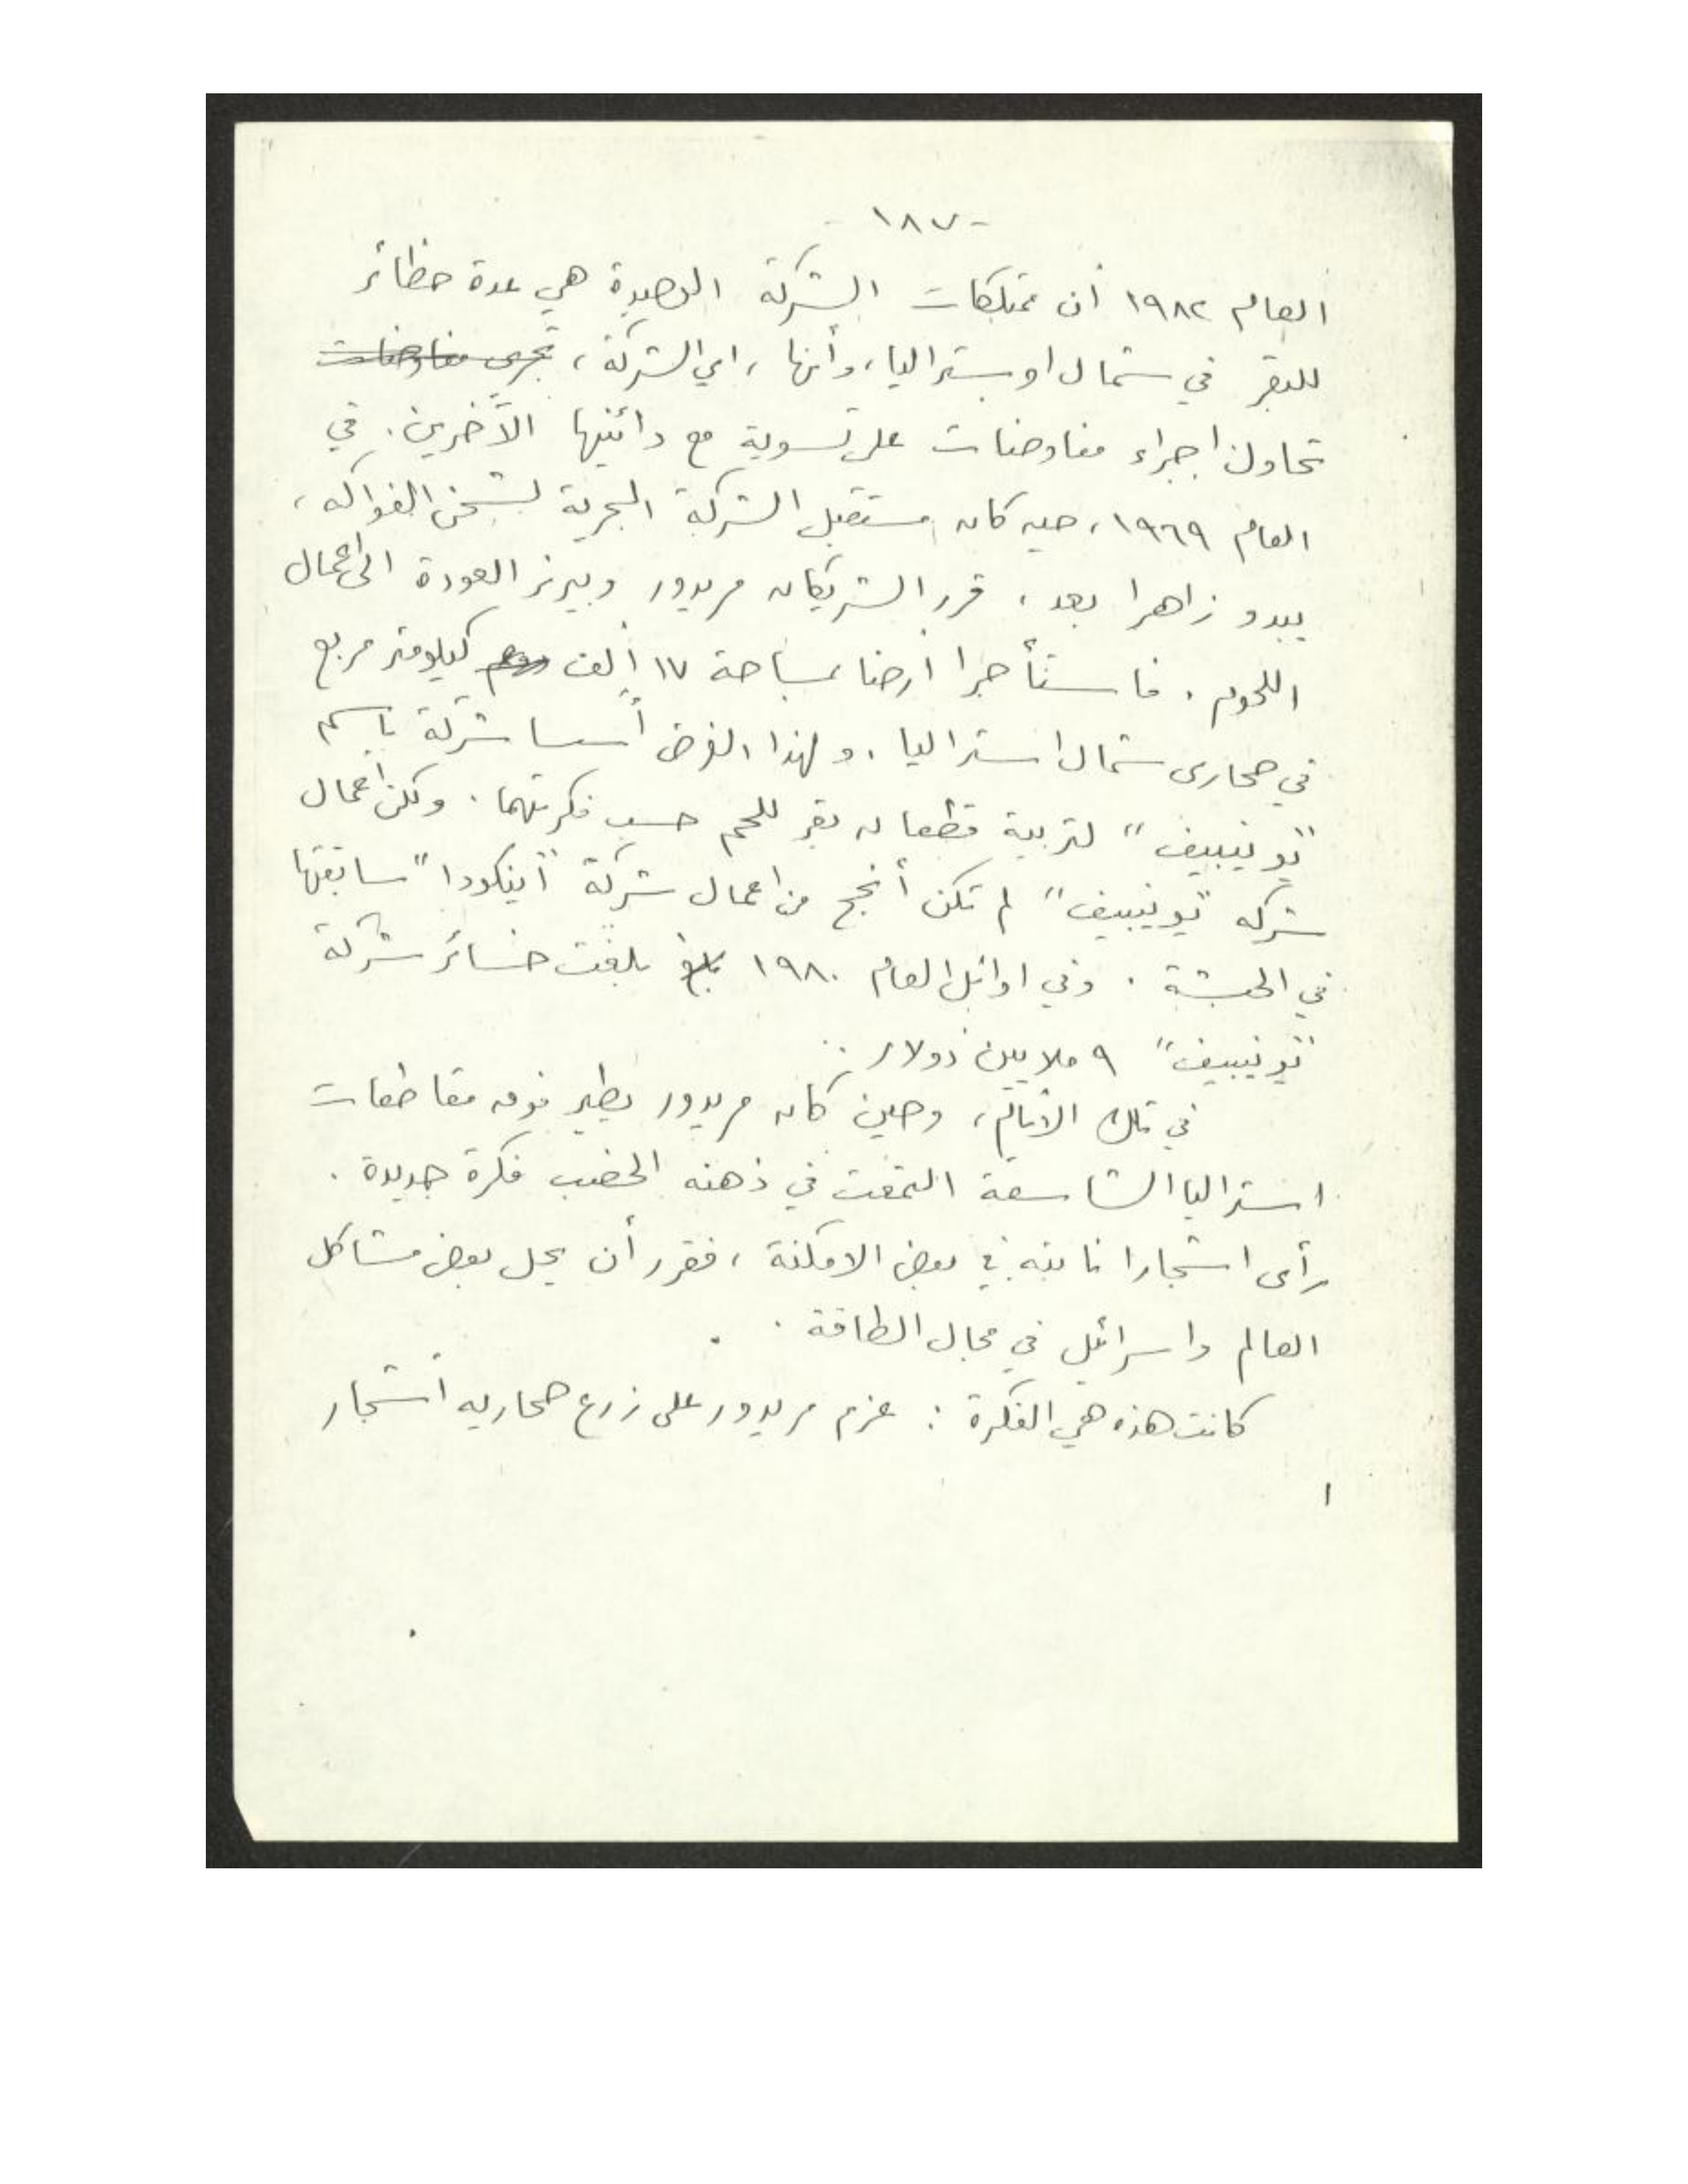 - ١٨٧ -
العام ١٩٨٢ أن ممتلكات الشركة الوحيدة هي عدة حظائر
للبقر في شمال اوستراليا، وأنها، اي الشركة، تجري مفاوضات
تحاول اجراء مفاوضات على تسوية مع دائنيها الآخرين. في
العام ١٩٦٩، حين كان مستقبل الشركة البحرية لشحن الفواكه،
يبدو زاهرا بعد، قرر الشريكان مريدور وبيرنر العودة الى اعمال
اللحوم. فاستأجرا أرضا بمساحة ١٧ ألف كيلومتر مربع
في صحارى شمال استراليا. ولهذا الغرض أسسا شركة باسم
"يونيبيف" لتربية قطعان بقر للحم حسب فكرتهما. ولكن اعمال
شركه "يونيبيف" لم تكن أنجح من اعمال شركة "اينكودا" سابقتها
في الحبشة. وفي اوائل العام ١٩٨٠ بلغ بلغت خسائر شركة
"يونيبيف" ٩ ملايين دولار.
في تلك الأيام، وحين كان مريدور يطير فوق مقاطعات
استراليا الشاسعة التمعت في ذهنه الخصب فكرة جديدة.
رأى اشجارا نابته في بعض الامكنة، فقرر أن يحل بعض مشاكل
العالم واسرائيل في مجال الطاقة.
كانت هذه هي الفكرة: عزم مريدور على زرع صحاريه أشجار
ا